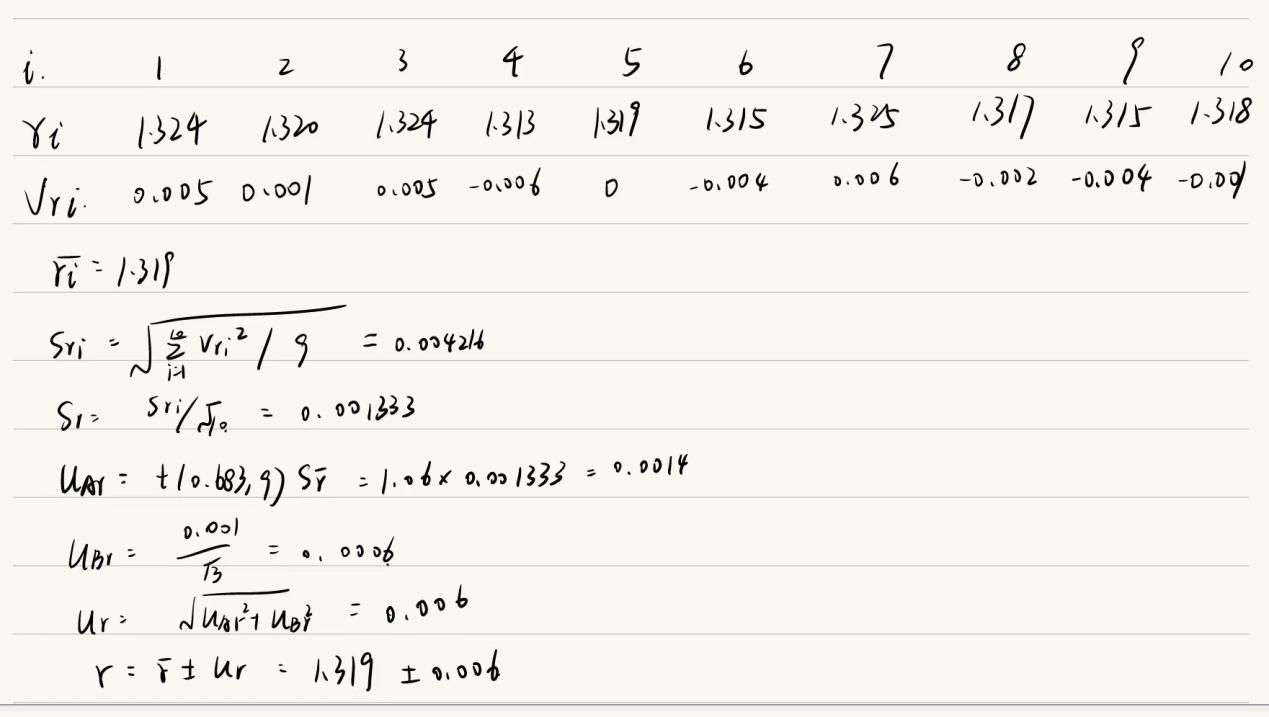 i. 1 2 3 4 5 6 7 8 9 10
ri 1.324 1.320 1.324 1.313 1.319 1.315 1.325 1.317 1.315 1.318
Vri. 0.005 0.001 0.005 -0.006 0 -0.004 0.006 -0.002 -0.004 -0.001
r̄i = 1.319
Sri = √(∑_{i=1}^{10} Vri² / 9) = 0.004216
Sr = Sri/√10 = 0.001333
UAr = t(0.683, 9) Sr̄ = 1.06 × 0.001333 = 0.0014
UBr = 0.001/√3 = 0.0006
Ur = √(UAr² + UBr²) = 0.006
r = r̄ ± Ur = 1.319 ± 0.006